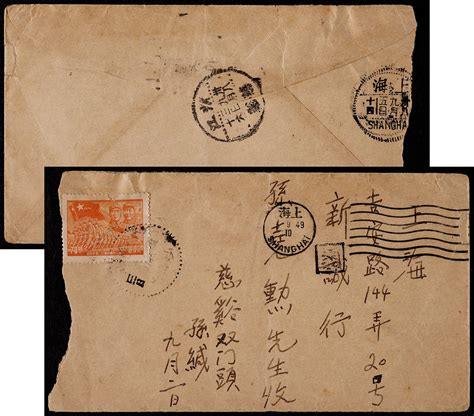 上海
SHANGHAI
上海
吉安路144弄20号
新誠行
上海
9 49
10
SHANGHAI
孫士 勳先生收
慈谿双门頭
孫緘
九月二日